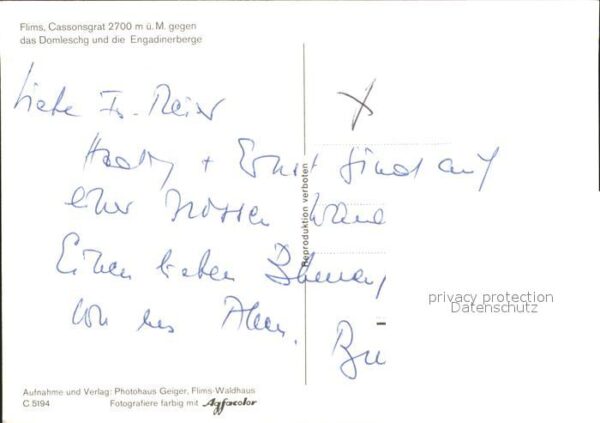 Flims, Cassonsgrat 2700 m ü. M. gegen
das Domleschg und die Engadinerberge
Liebe Fr. Meier
+ Ernst sind auf
einer grossen
Einen lieben
von uns Allen.
Reproduktion verboten
privacy protection
Datenschutz
Aufnahme und Verlag: Photohaus Geiger, Flims-Waldhaus
C 5194 Fotografiere farbig mit Agfacolor